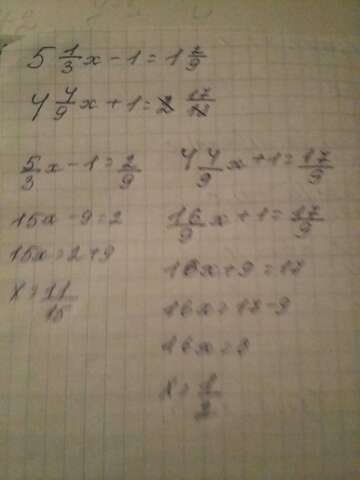 5 1/3 x - 1 = 1 2/9
4 4/9 x + 1 = 2 17/
5/3 x - 1 = 2/9
15x - 9 = 2
15x = 2 + 9
x = 11/15
4 4/9 x + 1 = 17/9
16/9 x + 1 = 17/9
16x + 9 = 17
16x = 17 - 9
x = 1/2